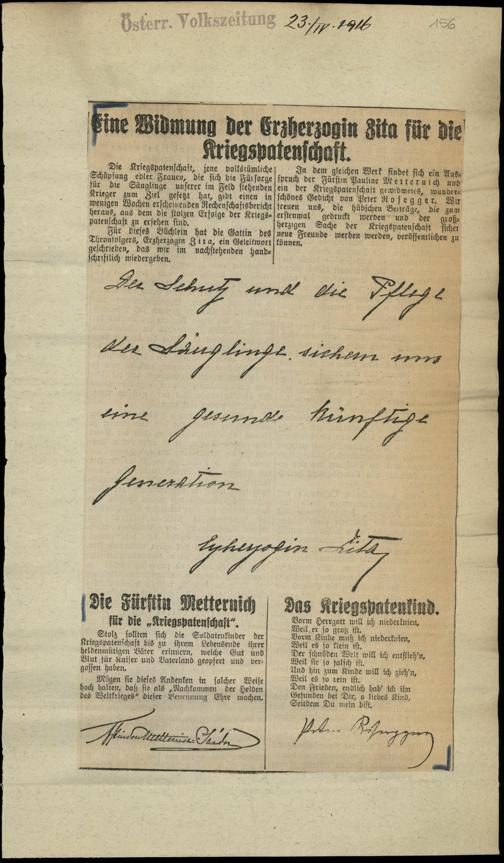 Österr. Volkszeitung 23./IV. 1916
156
Eine Widmung der Erzherzogin Zita für die
Kriegspatenschaft.
Die Kriegspatenschaft, jene volkstümliche
Schöpfung edler Frauen, die sich die Fürsorge
für die Säuglinge unserer im Feld stehenden
Krieger zum Ziel gesetzt hat, gibt einen in
wenigen Wochen erscheinenden Rechenschaftsbericht
heraus, aus dem die stolzen Erfolge der Kriegs-
patenschaft zu ersehen sind.
Für dieses Büchlein hat die Gattin des
Thronfolgers, Erzherzogin Zita, ein Geleitwort
geschrieben, das wir im nachstehenden hand-
schriftlich wiedergeben.
In dem gleichen Werk findet sich ein Aus-
spruch der Fürstin Pauline Metternich und
ein der Kriegspatenschaft gewidmetes, wunder-
schönes Gedicht von Peter Rosegger. Wir
freuen uns, die hübschen Beiträge, die zum
erstenmal gedruckt werden und der groß-
herzigen Sache der Kriegspatenschaft sicher
neue Freunde werben werden, veröffentlichen zu
können.
Der Schutz und die Pflege
der Säuglinge sichern uns
eine gesunde künftige
Generation
Erzherzogin Zita
Die Fürstin Metternich
für die „Kriegspatenschaft".
Stolz sollten sich die Soldatenkinder der
Kriegspatenschaft bis zu ihrem Lebensende ihrer
heldenmütigen Väter erinnern, welche Gut und
Blut für Kaiser und Vaterland geopfert und ver-
gossen haben.
Mögen sie dieses Andenken in solcher Weise
hoch halten, daß sie als „Nachkommen der Helden
des Weltkriegs" dieser Benennung Ehre machen.
Fürstin Metternich Sándor
Das Kriegspatenkind.
Vorm Herrgott will ich niederknien,
Weil er so groß ist.
Vorm Kinde muß ich niederknien,
Weil es so klein ist.
Der schnöden Welt will ich entflieh'n,
Weil sie so falsch ist.
Und hin zum Kinde will ich zieh'n,
Weil es so rein ist.
Den Frieden, endlich hab' ich ihn
Gefunden bei Dir, o liebes Kind,
Seitdem Du mein bist.
Peter Rosegger